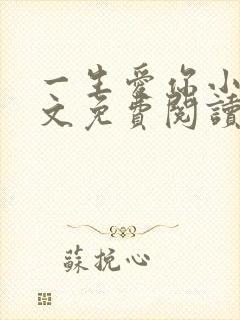 一生愛你小
文免費閱讀
蘇挽心